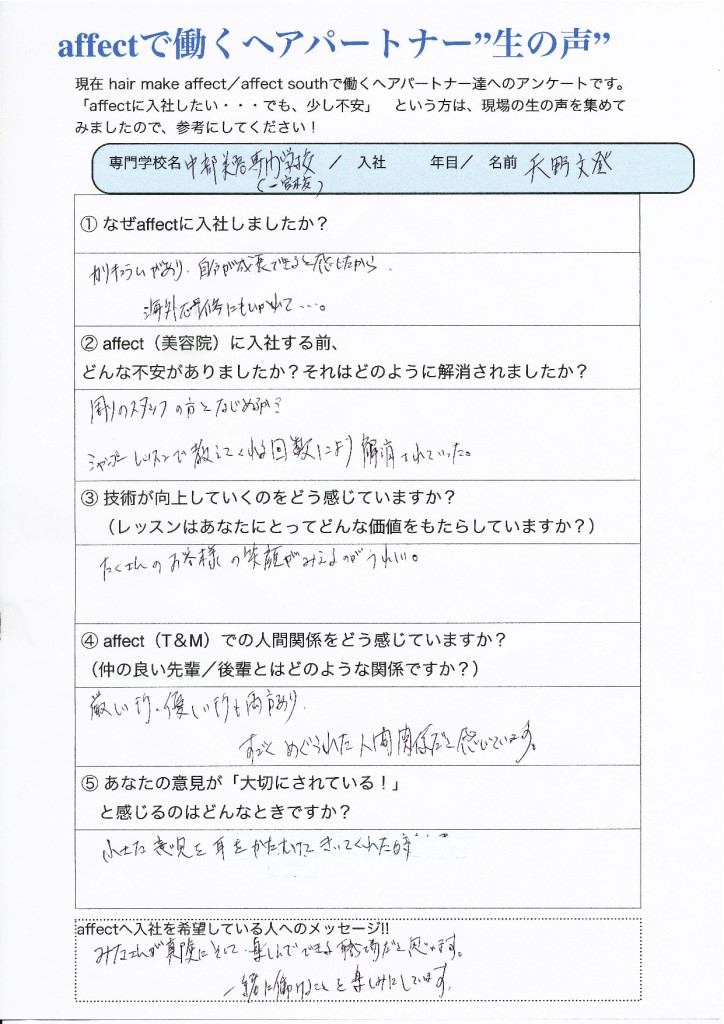 affectで働くヘアパートナー”生の声”
現在 hair make affect／affect southで働くヘアパートナー達へのアンケートです。
「affectに入社したい・・・でも、少し不安」　という方は、現場の生の声を集めて
みましたので、参考にしてください！
専門学校名 中部美容専門学校 ／ 入社　　年目／ 名前 天野文登
（一宮校）
① なぜaffectに入社しましたか？
カリキュラムがあり、自分が成長できると感じたから、
海外研修にもいかれて・・・。
② affect（美容院）に入社する前、
どんな不安がありましたか？それはどのように解消されましたか？
周りのスタッフの方となじめるか？
シャンプーレッスンで教えてくれる回数により解消されていった。
③ 技術が向上していくのをどう感じていますか？
（レッスンはあなたにとってどんな価値をもたらしていますか？）
たくさんのお客様の笑顔がみえるのがうれしい。
④ affect（T＆M）での人間関係をどう感じていますか？
（仲の良い先輩／後輩とはどのような関係ですか？）
厳しい所、優しい所も両方あり、
すごくめぐられた人間関係だと感じています。
⑤ あなたの意見が「大切にされている！」
と感じるのはどんなときですか？
小さな意見を耳をかたむけてきいてくれた時・・・
affectへ入社を希望している人へのメッセージ!!
みなさんが真険にそして、楽しんでできる職場だと思います。
一緒に働けることを楽しみにしています。